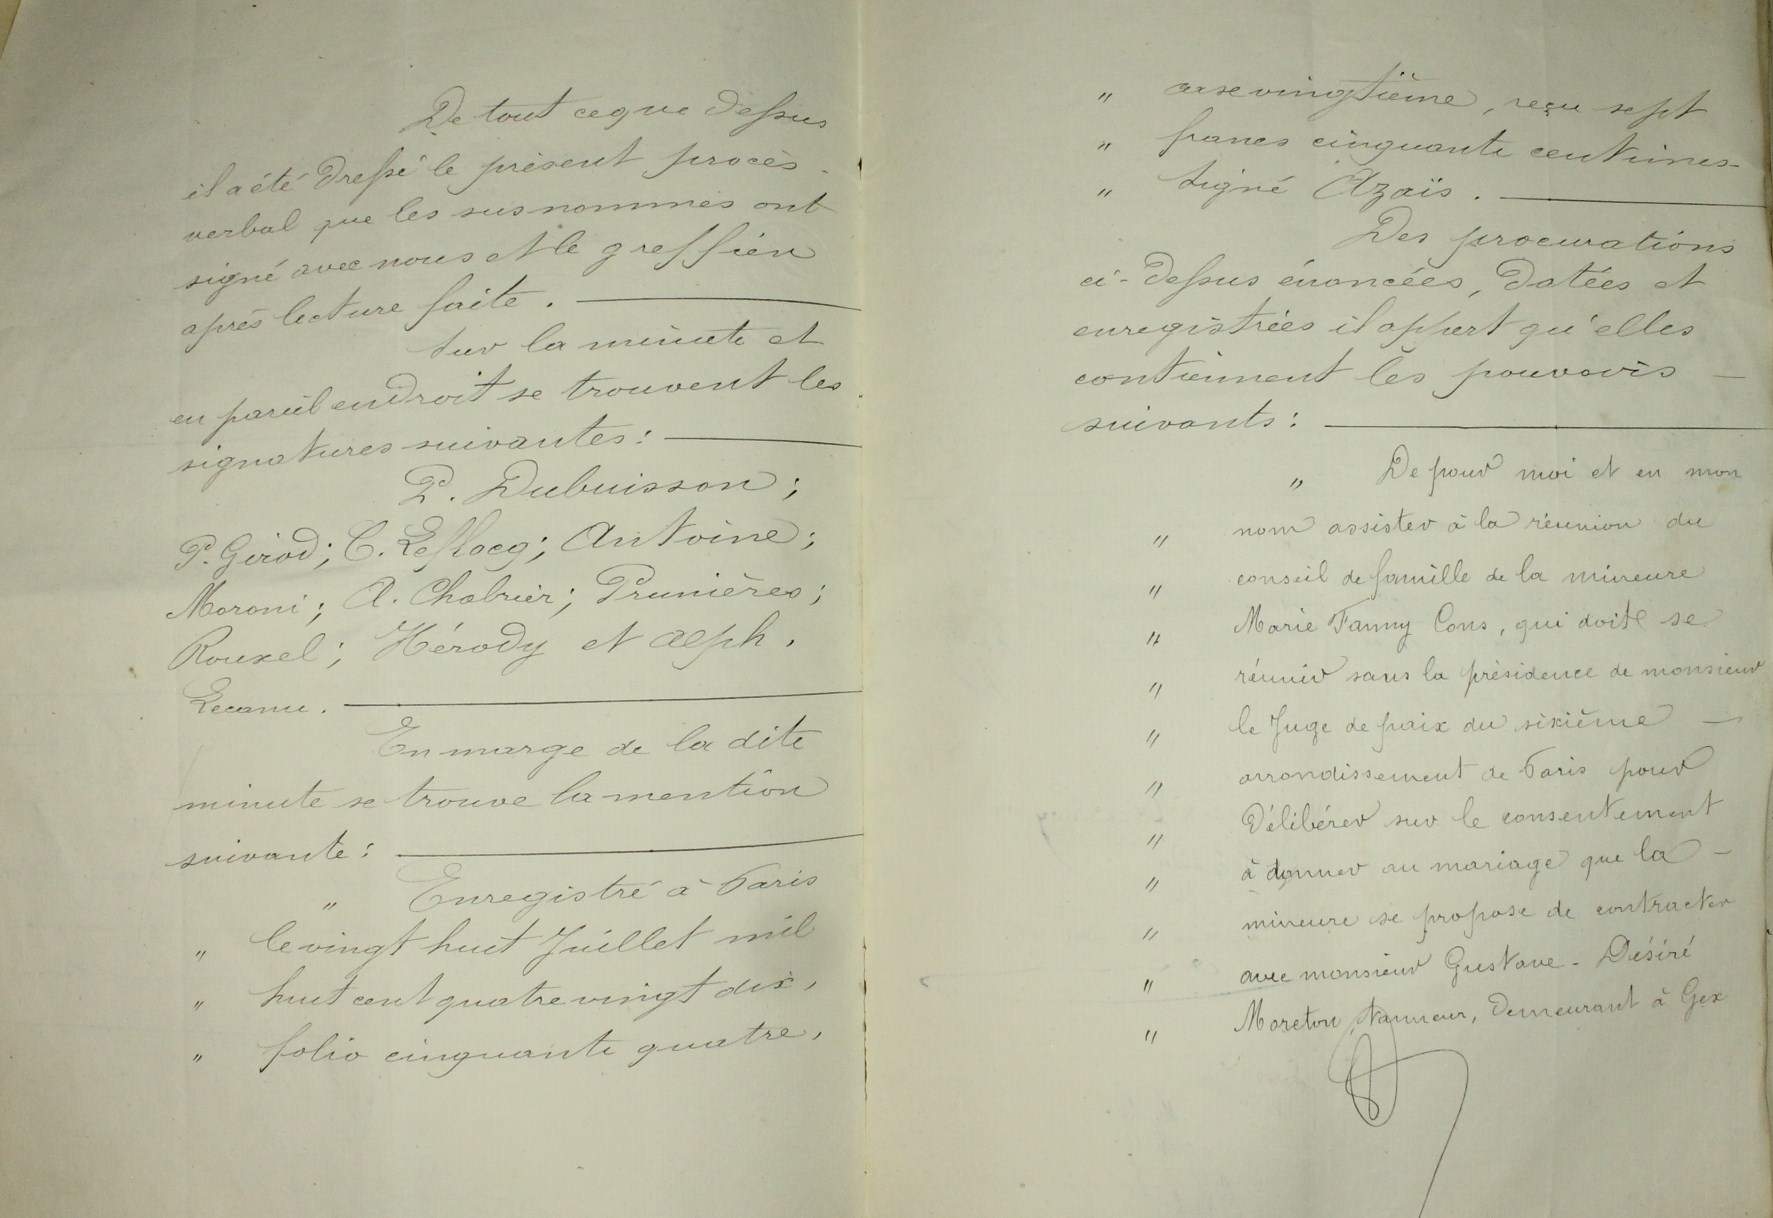 De tout ce que dessus
il a été dressé le présent procès-
verbal que les susnommés ont
signé avec nous et le greffier
après lecture faite. —
Sur la minute et
en pareil endroit se trouvent les
signatures suivantes : —
P. Dubuisson ;
P. Girod ; C. Leflocq ; Antoine ;
Moroni ; A. Chabrier ; Prunières ;
Rouxel ; Hérody et Alph.
Lecanu. —
En marge de la dite
minute se trouve la mention
suivante : —
" Enregistré à Paris
" le vingt huit Juillet mil
" huit cent quatre vingt dix,
" folio cinquante quatre,
" case vingtième, reçu sept
" francs cinquante centimes-
" Signé Azaïs. —
Des procurations
ci-dessus énoncées, datées et
enregistrées il appert qu'elles
contiennent les pouvoirs —
suivants : —
" De pour moi et en mon
" nom assister à la réunion du
" conseil de famille de la mineure
" Marie Fanny Cons, qui doit se
" réunir sous la présidence de monsieur
" le Juge de paix du sixième —
" arrondissement de Paris pour
" Délibérer sur le consentement
" à donner au mariage que la —
" mineure se propose de contracter
" avec monsieur Gustave-Désiré
" Moreton, tanneur, demeurant à Gex